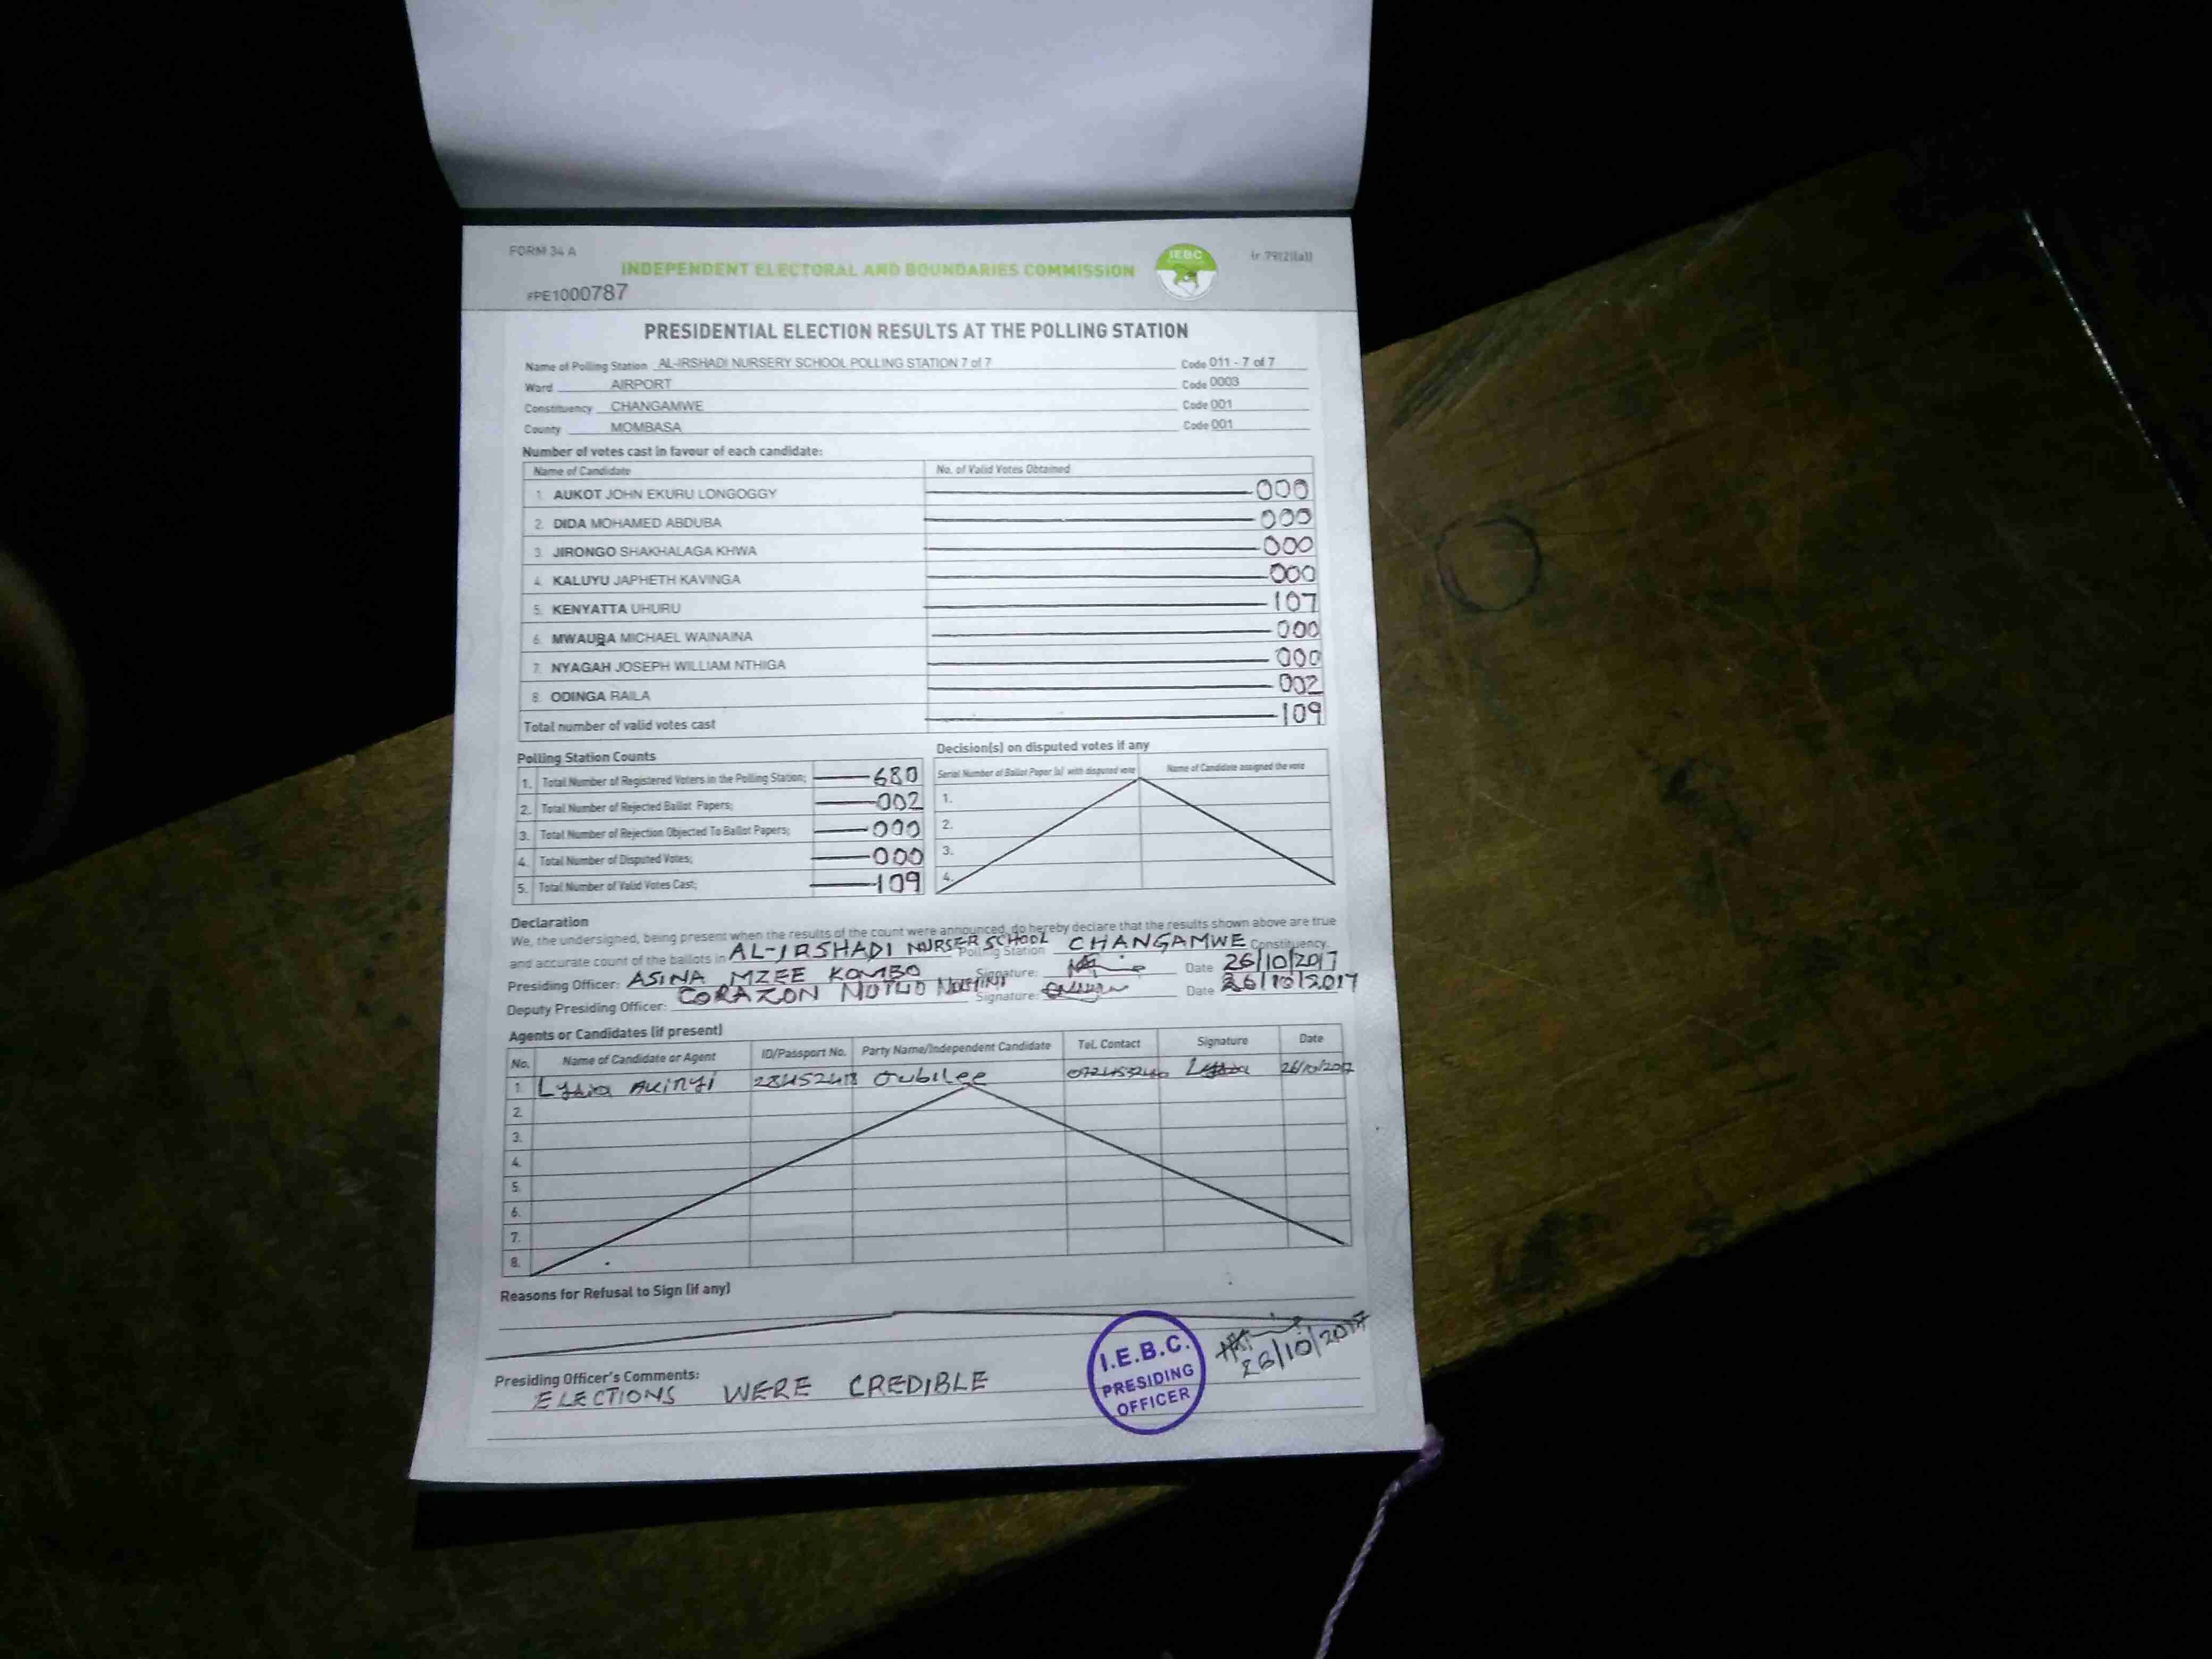 FORM 34 A
(r. 79(2)(a))
INDEPENDENT ELECTORAL AND BOUNDARIES COMMISSION
IEBC
#PE1000787
PRESIDENTIAL ELECTION RESULTS AT THE POLLING STATION
Name of Polling Station AL-IRSHADI NURSERY SCHOOL POLLING STATION 7 of 7 Code 011 - 7 of 7
Ward AIRPORT Code 0003
Constituency CHANGAMWE Code 001
County MOMBASA Code 001
Number of votes cast in favour of each candidate:
Name of Candidate No. of Valid Votes Obtained
1. AUKOT JOHN EKURU LONGOGGY 000
2. DIDA MOHAMED ABDUBA 000
3. JIRONGO SHAKHALAGA KHWA 000
4. KALUYU JAPHETH KAVINGA 000
5. KENYATTA UHURU 107
6. MWAURA MICHAEL WAINAINA 000
7. NYAGAH JOSEPH WILLIAM NTHIGA 000
8. ODINGA RAILA 002
Total number of valid votes cast 109
Polling Station Counts
1. Total Number of Registered Voters in the Polling Station; 680
2. Total Number of Rejected Ballot Papers; 002
3. Total Number of Rejection Objected To Ballot Papers; 000
4. Total Number of Disputed Votes; 000
5. Total Number of Valid Votes Cast; 109
Decision(s) on disputed votes if any
Serial Number of Ballot Paper (s) with disputed vote Name of Candidate assigned the vote
1.
2.
3.
4.
Declaration
We, the undersigned, being present when the results of the count were announced, do hereby declare that the results shown above are true
and accurate count of the ballots in AL-IRSHADI NURSER SCHOOL Polling Station CHANGAMWE Constituency.
Presiding Officer: ASINA MZEE KOMBO Signature: Date 26/10/2017
Deputy Presiding Officer: CORAZON Signature: Date 26/10/2017
Agents or Candidates (if present)
No. Name of Candidate or Agent ID/Passport No. Party Name/Independent Candidate Tel. Contact Signature Date
1 Akinyi Jubilee 26/10/2017
2.
3.
4.
5.
6.
7.
8.
Reasons for Refusal to Sign (if any)
Presiding Officer's Comments:
ELECTIONS WERE CREDIBLE
I.E.B.C.
PRESIDING
OFFICER
26/10/2017